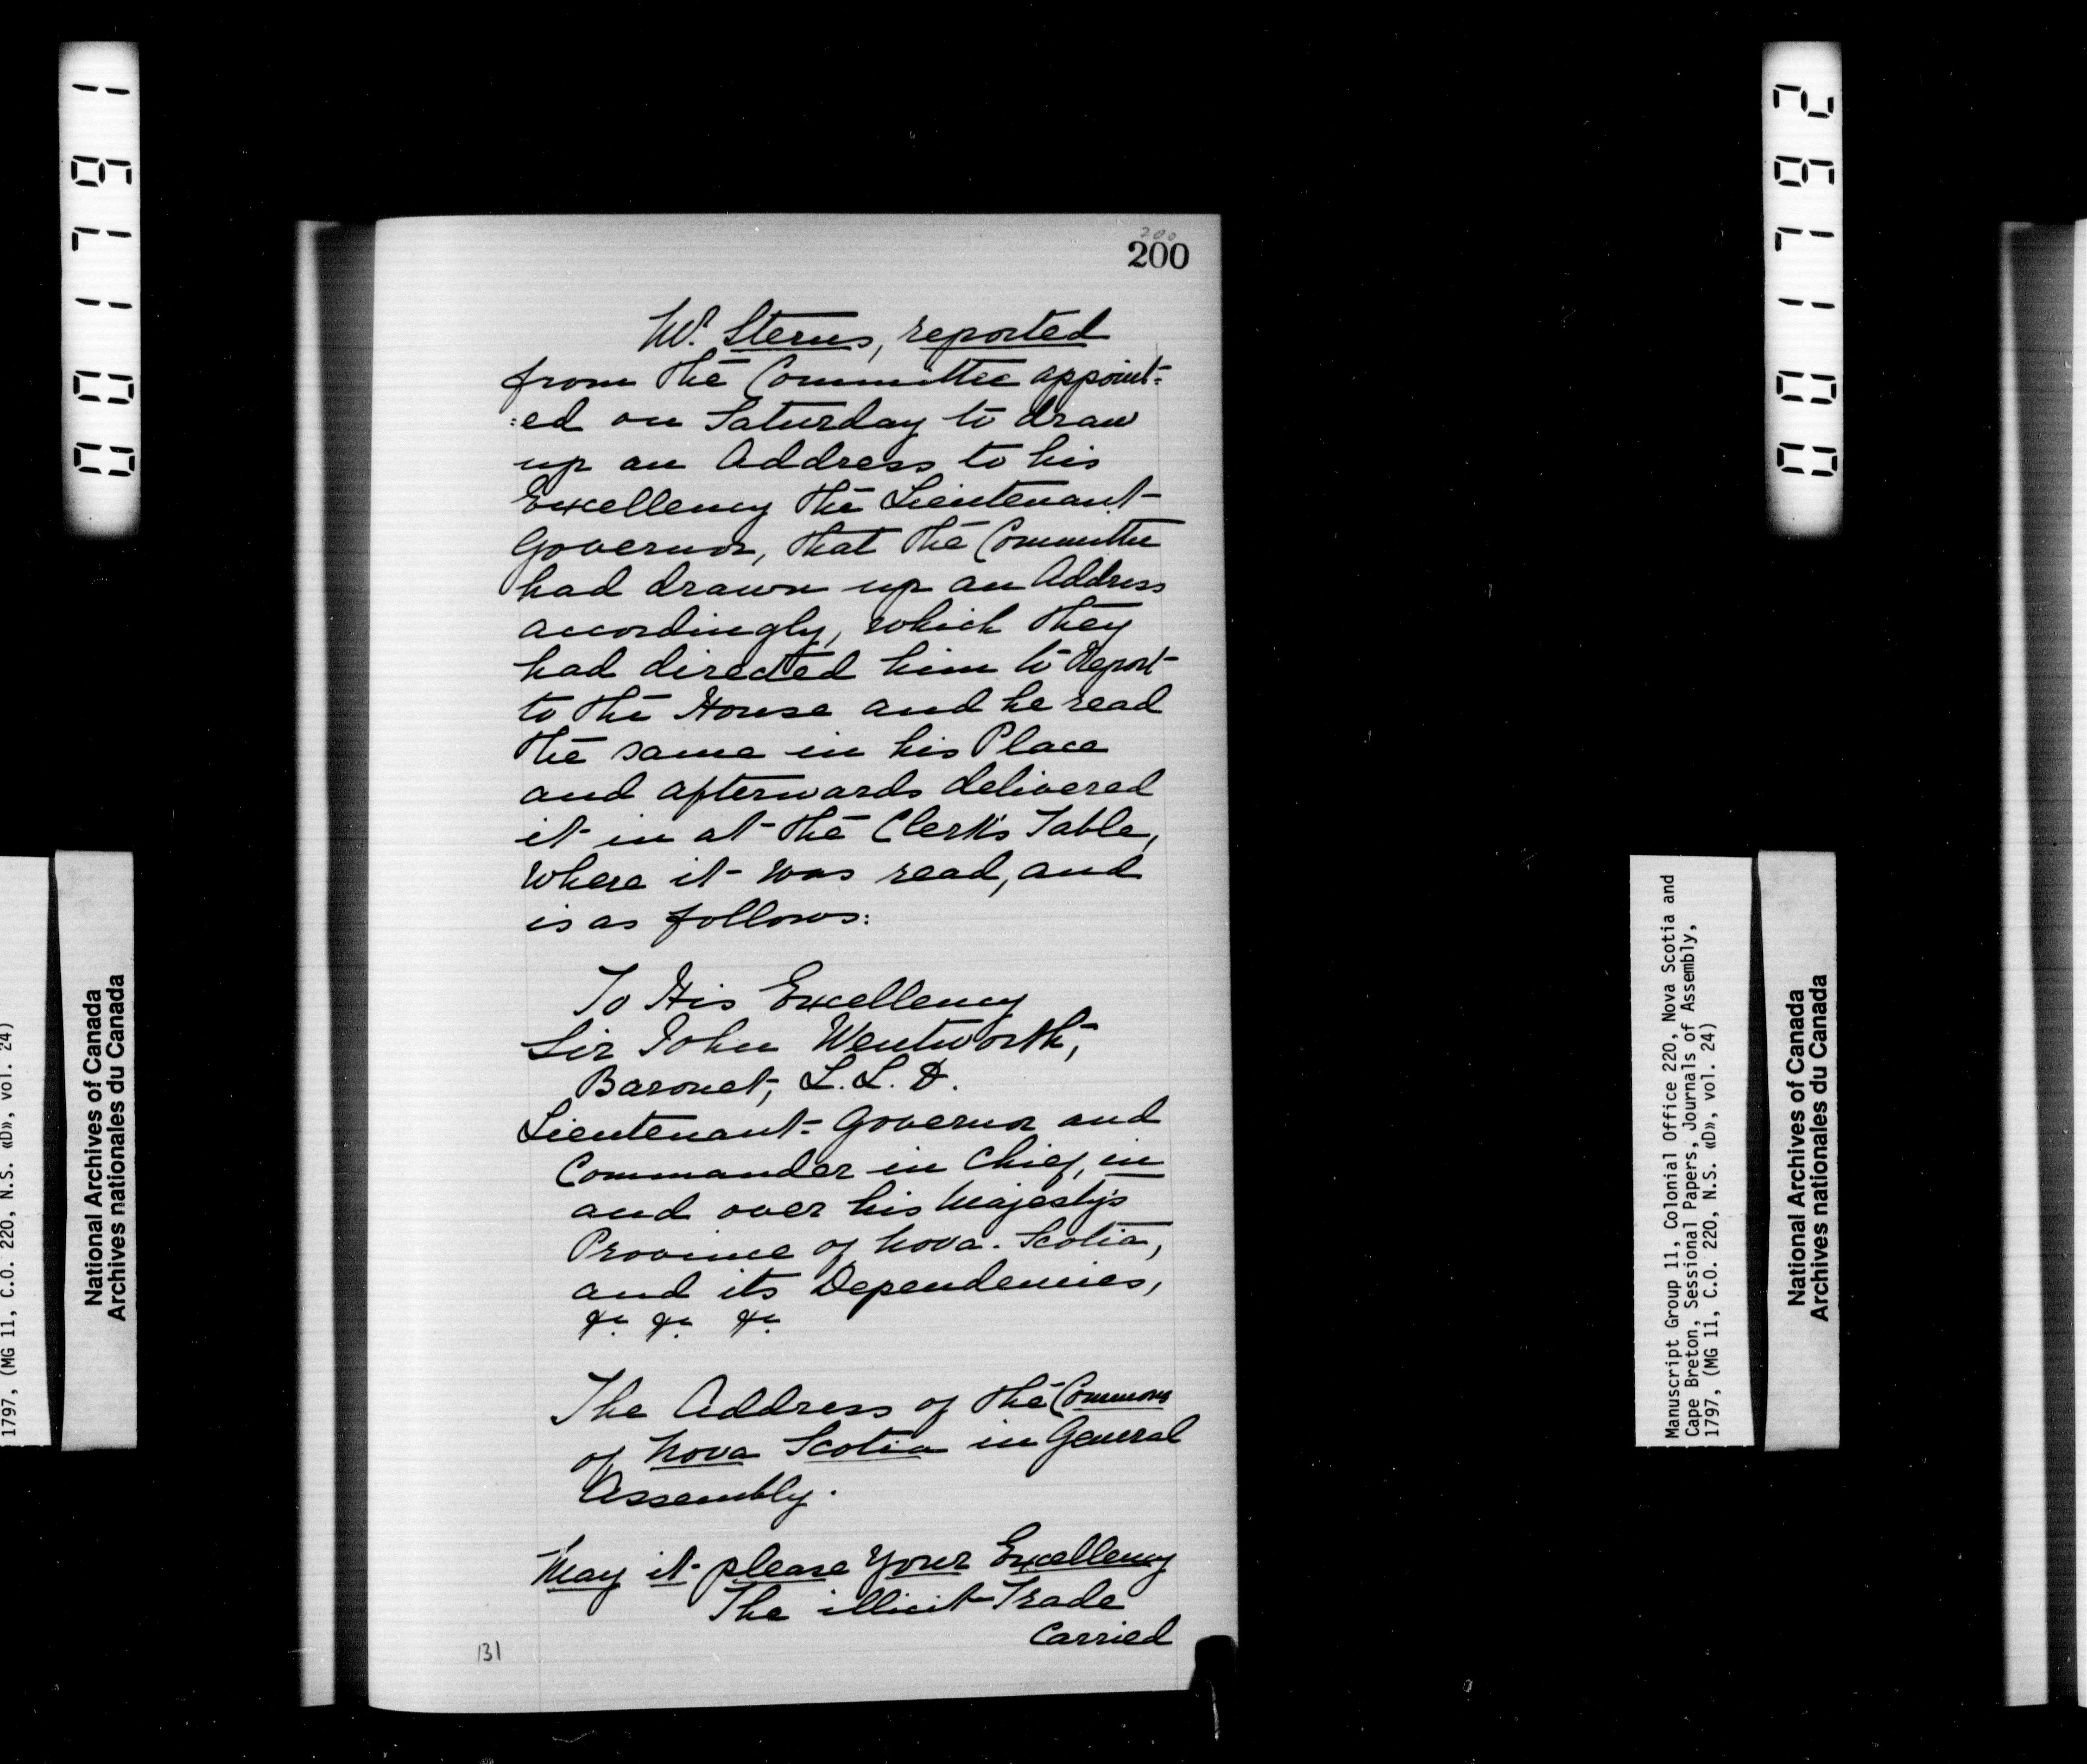 200
200
Mr. Sterns, reported
from the Committee appoint=
:ed on Saturday to draw
up an Address to his
Excellency the Lieutenant
Governor, that the Committee
had drawn up an Address
accordingly, which they
had directed him to Report
to the House and he read
the same in his Place
and afterwards delivered
it in at the Clerk's Table,
where it was read, and
is as follows:
To His Excellency
Sir John Wentworth,
Baronet, L.L.D.
Lieutenant=Governor and
Commander in Chief, in
and over his Majesty's
Province of Nova-Scotia,
and its Dependencies,
&c. &c. &c.
The Address of the Commons
of Nova Scotia in General
Assembly.
May it please Your Excellency
The illicit Trade
Carried
131
000171961
000171962
1797, (MG 11, C.O. 220, N.S. «D», vol. 24)
National Archives of Canada
Archives nationales du Canada
Manuscript Group 11, Colonial Office 220, Nova Scotia and
Cape Breton, Sessional Papers, Journals of Assembly,
1797, (MG 11, C.O. 220, N.S. «D», vol. 24)
National Archives of Canada
Archives nationales du Canada